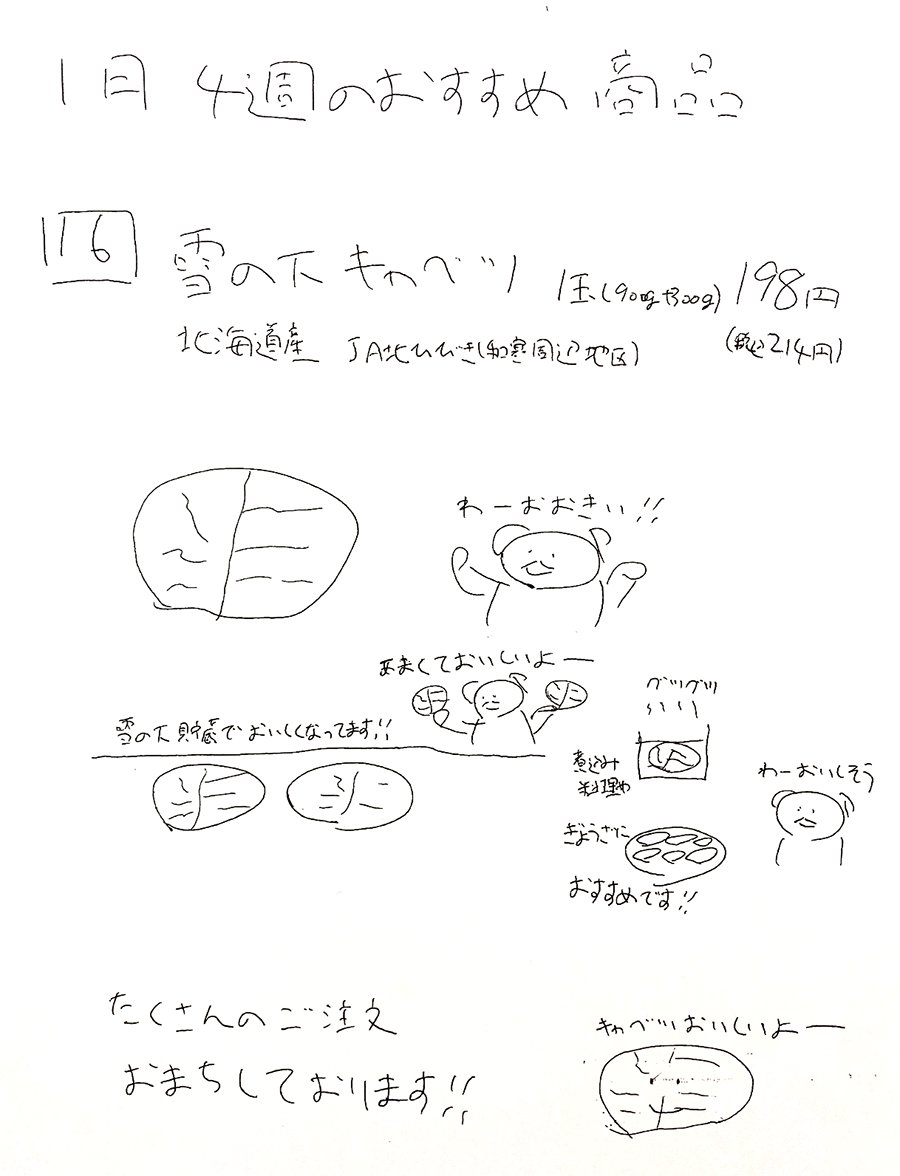 1月 4週のおすすめ商品
116 雪の下キャベツ 1玉(900g~1300g) 198円
北海道産 JA北ひびき(和寒周辺地区) (税込214円)
わーおおきい!!
あまくておいしいよー
雪の下貯蔵でおいしくなってます!!
グツグツ
煮込み
料理や
わーおいしそう
ぎょうざに
おすすめです!!
たくさんのご注文
おまちしております!!
キャベツおいしいよー